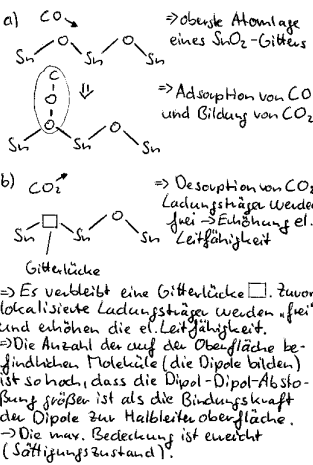 a) CO
⇒ oberste Atomlage
eines SnO₂-Gitters
O O
Sn Sn Sn
C
O
⇓
⇒ Adsorption von CO
und Bildung von CO₂
O O
Sn Sn Sn
b)
CO₂
⇒ Desorption von CO₂
Ladungsträger werden
frei → Erhöhung el.
Leitfähigkeit
O
Sn Sn Sn
Gitterlücke
⇒ Es verbleibt eine Gitterlücke □. Zuvor
lokalisierte Ladungsträger werden „frei"
und erhöhen die el. Leitfähigkeit.
⇒ Die Anzahl der auf der Oberfläche be-
findlichen Moleküle (die Dipole bilden)
ist so hoch, dass die Dipol-Dipol-Absto-
ßung größer ist als die Bindungskraft
der Dipole zur Halbleiteroberfläche.
→ Die max. Bedeckung ist erreicht
(Sättigungszustand).